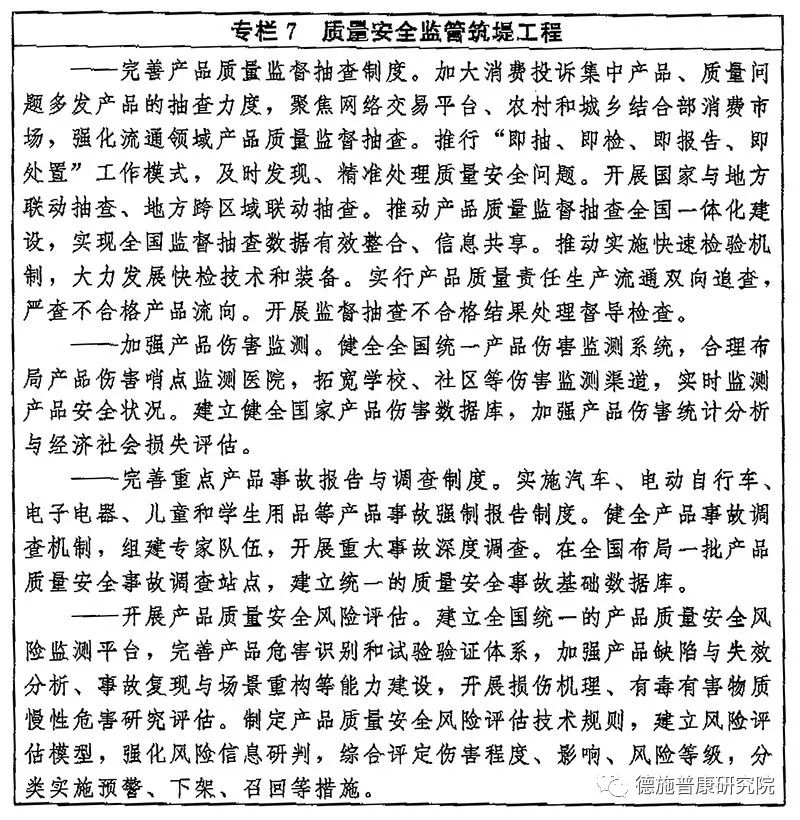 专栏 7 质量安全监管筑堤工程
——完善产品质量监督抽查制度。加大消费投诉集中产品、质量问
题多发产品的抽查力度，聚焦网络交易平台、农村和城乡结合部消费市
场，强化流通领域产品质量监督抽查。推行“即抽、即检、即报告、即
处置”工作模式，及时发现、精准处理质量安全问题。开展国家与地方
联动抽查、地方跨区域联动抽查。推动产品质量监督抽查全国一体化建
设，实现全国监督抽查数据有效整合、信息共享。推动实施快速检验机
制，大力发展快检技术和装备。实行产品质量责任生产流通双向追查，
严查不合格产品流向。开展监督抽查不合格结果处理督导检查。
——加强产品伤害监测。健全全国统一产品伤害监测系统，合理布
局产品伤害哨点监测医院，拓宽学校、社区等伤害监测渠道，实时监测
产品安全状况。建立健全国家产品伤害数据库，加强产品伤害统计分析
与经济社会损失评估。
——完善重点产品事故报告与调查制度。实施汽车、电动自行车、
电子电器、儿童和学生用品等产品事故强制报告制度。健全产品事故调
查机制，组建专家队伍，开展重大事故深度调查。在全国布局一批产品
质量安全事故调查站点，建立统一的质量安全事故基础数据库。
——开展产品质量安全风险评估。建立全国统一的产品质量安全风
险监测平台，完善产品危害识别和试验验证体系，加强产品缺陷与失效
分析、事故复现与场景重构等能力建设，开展损伤机理、有毒有害物质
慢性危害研究评估。制定产品质量安全风险评估技术规则，建立风险评
估模型，强化风险信息研判，综合评定伤害程度、影响、风险等级，分
类实施预警、下架、召回等措施。
德施普康研究院